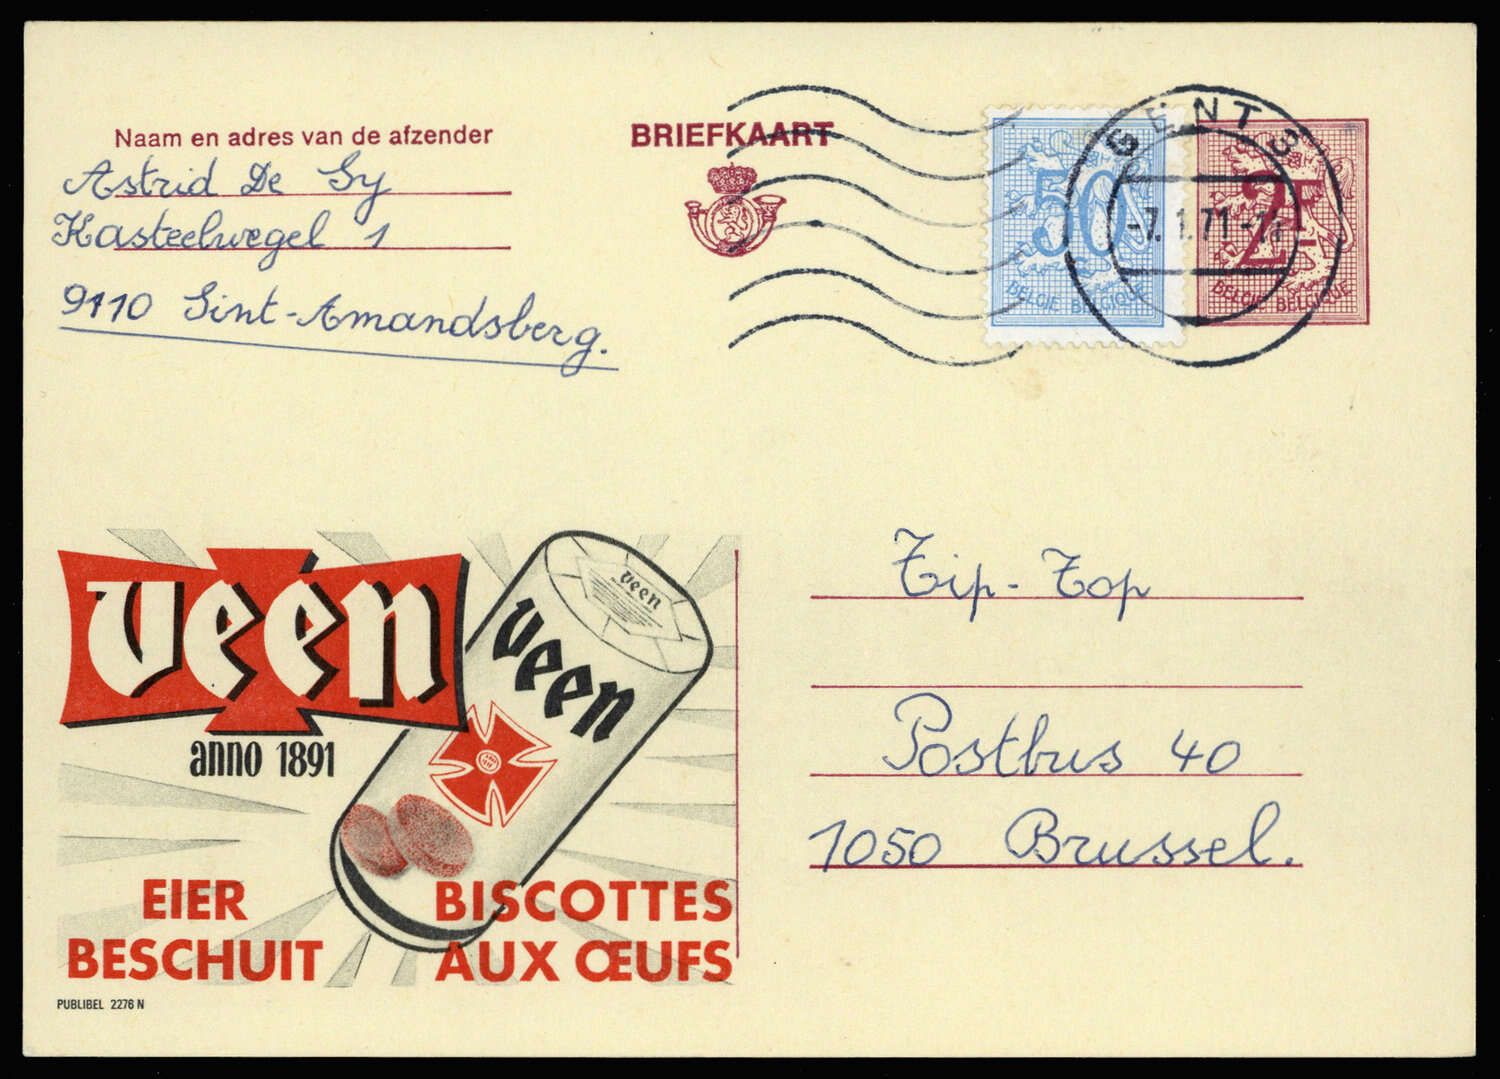 Naam en adres van de afzender
Astrid De Gy
Kasteelwegel 1
9110 Sint-Amandsberg.
BRIEFKAART
50
BELGIE BELGIQUE
GENT 3
-7.1.71-
2F
BELGIE BELGIQUE
veen
anno 1891
veen
veen
EIER
BESCHUIT
BISCOTTES
AUX ŒUFS
PUBLIBEL 2276 N
Tip-Top
Postbus 40
1050 Brussel.